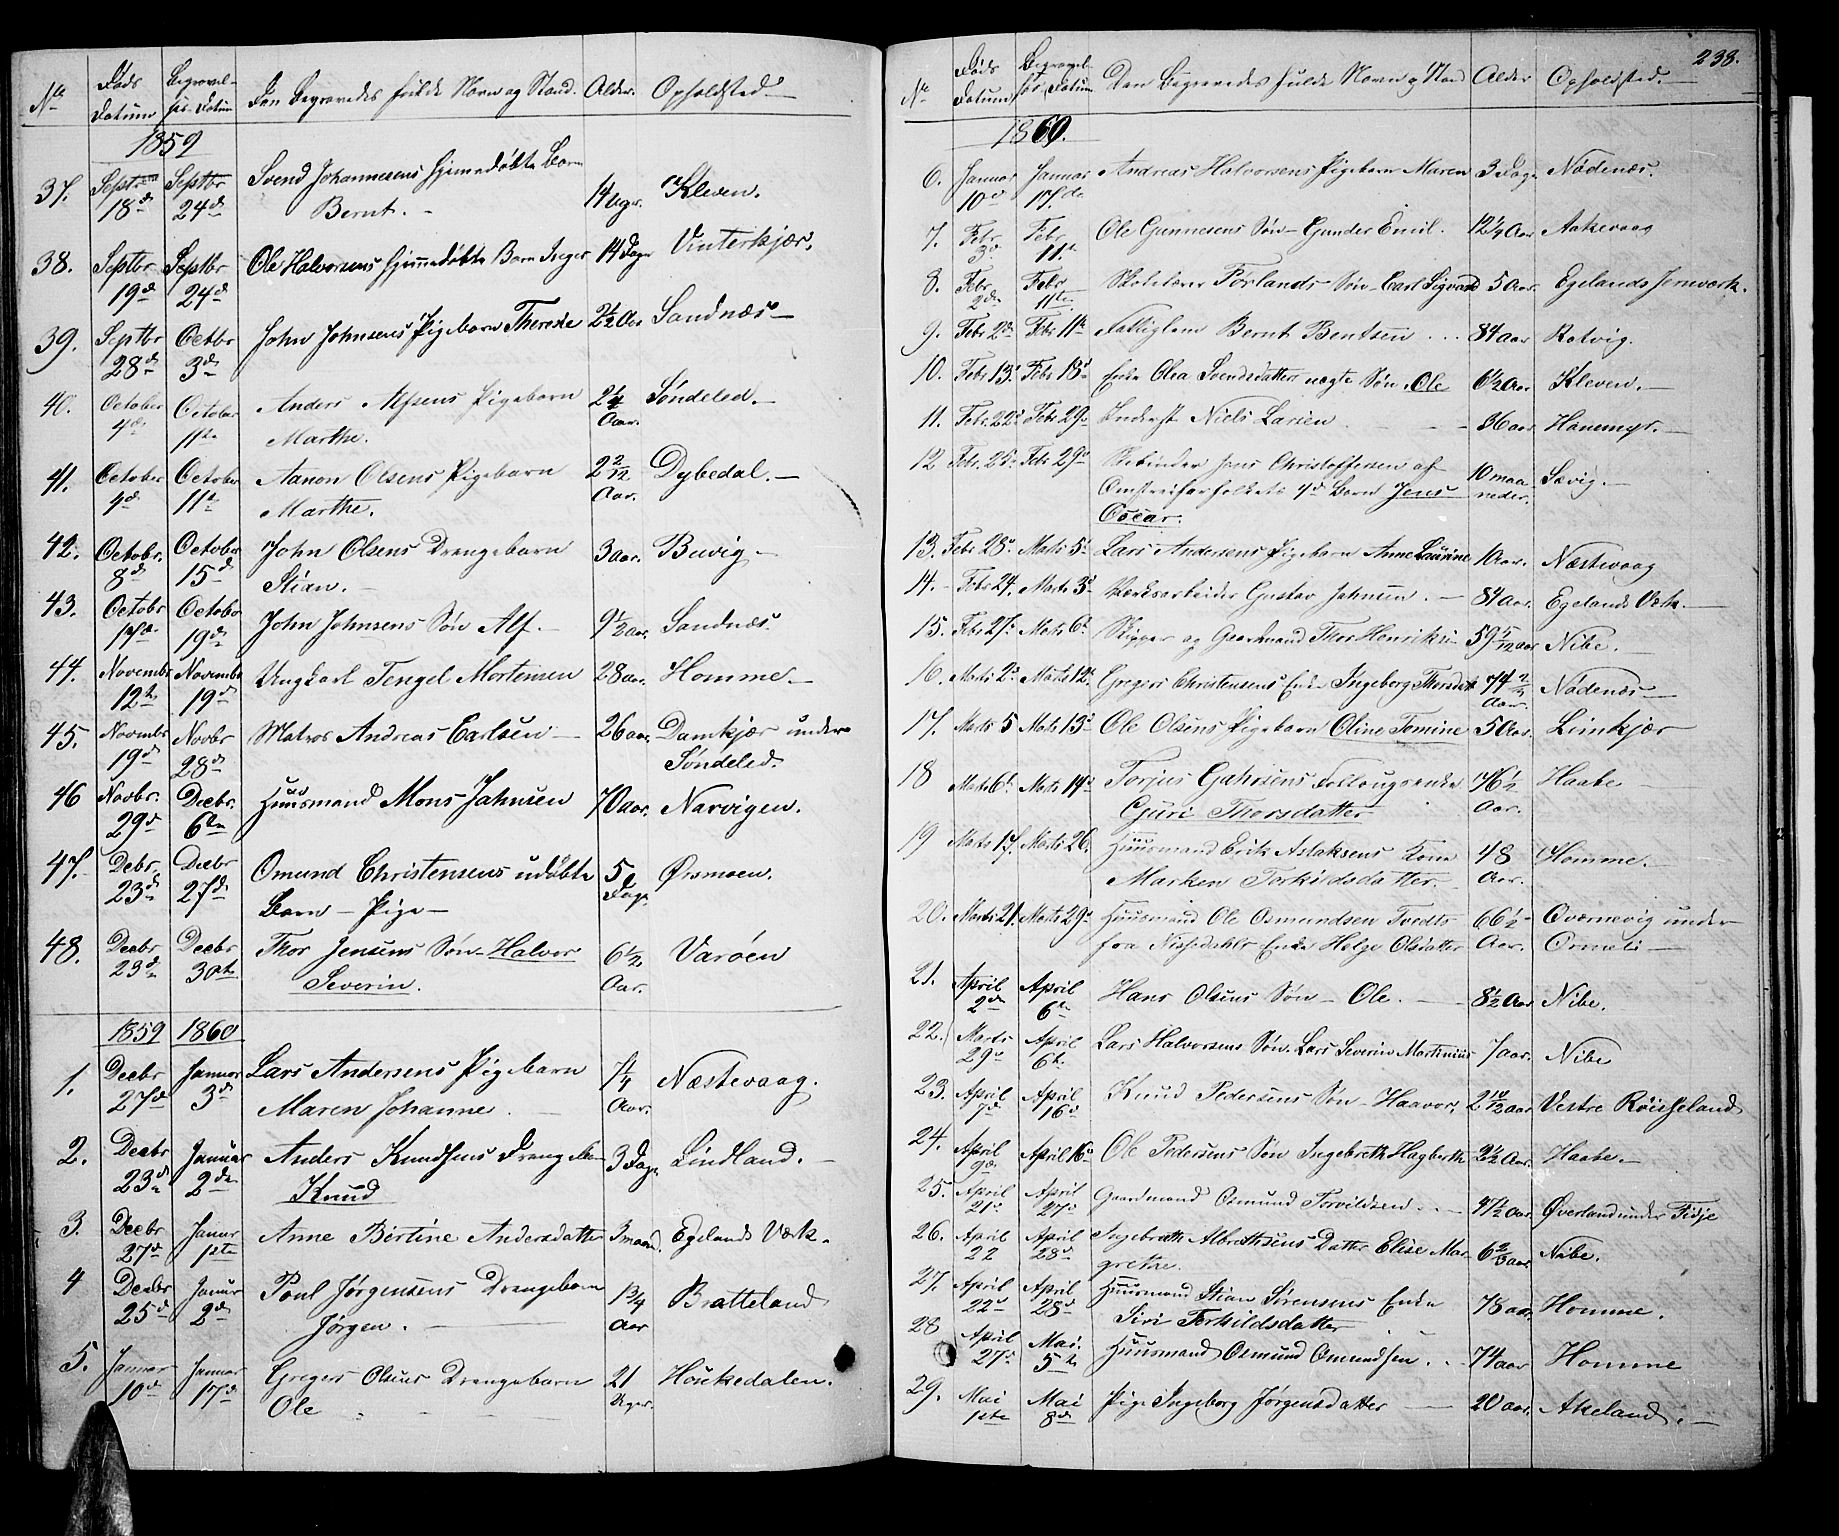 No Døds Datum Begravelses-Datum Den Begravedes fulde Navn og Stand. Alder. Opholdsted.
1859
37. Septbr 18d Septbr 24d Svend Johannesens hjemmedøbte Barn
Bernt. 14 Uger. Kleven.
38. Septbr 19d Septbr 24d Ole Halvorsens hjemmedøbte Barn Inger 14 Dage Vinterkjær.
39. Septbr 28d Octbr 3d John Johnsens Pigebarn Therese 2 1/2 Aar Sandnæs
40. October 4de October 11te Anders Alfsens Pigebarn
Marthe. 2 1/4 Aar. Søndeled.
41. October 4d October 11te Aanon Olsens Pigebarn
Marthe. 2 2/12 Aar. Dybedal.
42. Octobr. 8d October 15d John Olsens Drengebarn
Stian. 3 Aar. Buvig
43. Octobr 17de Octobr 19d John Johnsens Søn Alf. 9 1/2 Aar. Sandnæs.
44. Novembr 12te Novembr 19d Ungkarl Tengel Mortensen 28 aar. Homme.
45. Novembr 19d Novbr 28d Matros Andreas Carlsen 26 aar. Damkjær under
Søndeled.
46 Novbr. 29d Decbr. 6te Huusmand Mons Jahnsen 70 aar. Narvigen.
47. Decbr. 23d Decbr 27d Omund Christensens udøbte
Barn - Pige - 5 Dage Ørsmoen.
48. Decbr 23d Decbr 30te Thor Jensens Søn - Halvor
Severin. 6 1/2 Aar. Varøen
1859 1860
1. Decbr 27d Januar 3d Lars Andersens Pigebarn
Maren Johanne. 7 1/4 Aar. Næstevaag.
2. Decbr 23d Januar 2den Anders Knudsens Drengebarn
Knud 3 Dage Lindland.
3. Decbr 27d Januar 1ste Anne Bertine Andersdatter 3 maand. Egelands Værk.
4 Decbr 25d Januar 2d Poul Jørgensens Drengebarn
Jørgen. 1 3/4 Aar Bratteland
5. Januar 10d Januar 17d Gregers Olsens Drengebarn
Ole 21 Uger. Houkedalen.
238.
No Døds Datum Begravelses Datum Den Begravedes fulde Navn og Stand Alder Opholdsted.
1860.
6. Januar 10d Januar 17de Andreas Halvorsens Pigebarn Maren 3 Dage Nødenæs.
7. Febr 3d Febr 11te Ole Gunnesens Søn - Gunder Emil. 12 1/4 Aar Aakevaag
8. Febr 2den Febr 11te Skolelærer Førlands Søn - Carl Sigvard 5 Aar. Egelands Jernværk.
9. Febr 2d Febr 11te Fattiglem Bernt Bentsen 84 aar Rotvig.
10. Febr 13d Febr 18d Enke Olea Svendsdatters uægte Søn, Ole 6 1/2 Aar Kleven.
11. Febr. 22d Febr 29d Inderst Niels Larsen 86 aar. Hanemyr.
12 Febr. 25d Febr 29d Skibinder Jens Christoffersen af
Omstreiferfolkets Barn Jens
Oscar. 10 maaneder. Sævig.
13. Febr 28d Marts 5d Lars Andersens Pigebarn Anne Laurine 1 Aar. Næstevaag
14. Febr 24. Marts 3d Værksarbeider Gustav Jahnsen. 84 aar. Egelands Værk.
15. Febr 27d Marts 6d Skipper og Gaardmand Thor Henriksen 59 5/12 aar Nibe.
16. Marts 2d Marts 12te Gregers Christensens Enke Ingeborg Thorsdatter 74 Aar. Nødenæs
17. Marts 5 Marts 13d Ole Olsens Pigebarn Oline Tomine 5 Aar. Limkjær
18 Marts 6d Marts 14d Torjus Gjeruldsens Føllaugsenke
Guri Thorsdatter 76 1/2 Aar. Haabe
19 Marts 17. Marts 26. Huusmand Erik Aslaksens Kone
Marken Torkildsdatter. 48 Aar. Homme.
20. Marts 21. Marts 29d Huusmand Ole Osmundsen Tvedts
fra Nissedahls Enke Helge Olsdatter 66 1/2 Aar. Qværnevig under
Ormeli
21. April 2den April 6te Hans Olsens Søn - Ole. 8 1/2 Aar Nibe.
22. Marts 29d April 6te Lars Halvorsens Søn Lars Severin Martinius 7 aar. Nibe
23. April 7d April 16d Knud Pedersens Søn - Haavor, 2 10/12 aar Vestre Røisseland
24. April 9de April 16d Ole Pedersens Søn Ingebreth Hagberth 2 1/2 Aar. Haabe.
25. April 21d April 27d Gaardmand Osmund Torvildsen 47 1/2 aar Øverland under Fidje
26. April 22 April 28d Ingebreth Albrethsens Datter Elise Mar-
grethe. 6 2/3 aar. Nibe.
27. April 22d April 28d Huusmand Stian Sørensens Enke
Siri Torkildsdatter 78 aar. Homme.
28 April 27d Mai. 5te Huusmand Osmund Omundsen 74 aar Homme
29. Mai 1ste Mai 8de Pige Ingeborg Jørgensdatter 20 aar. Akeland.